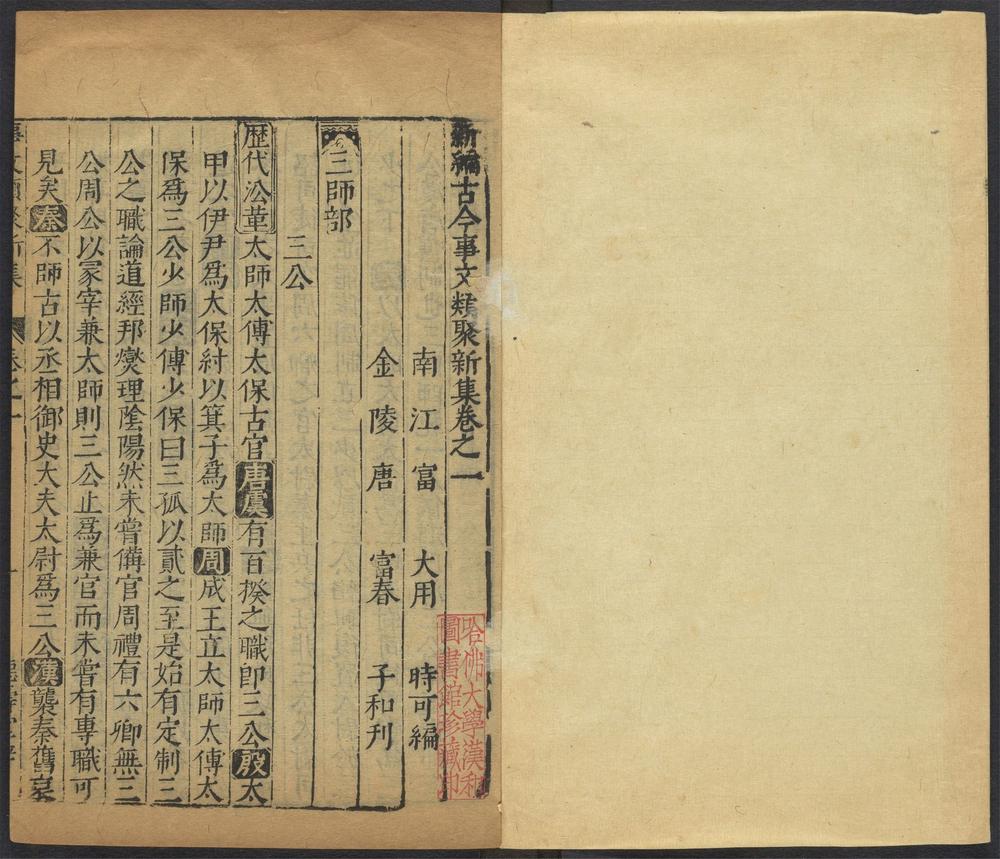 新編古今事文類聚新集卷之一
南江富 大用 時可編
金陵唐 富春 子和刊
三師部
三公
歷代沿革太師太傅太保古官唐虞有百揆之職即三公殷太
甲以伊尹爲太保紂以箕子爲太師周成王立太師太傅太
保爲三公少師少傅少保曰三孤以貳之至是始有定制三
公之職論道經邦燮理陰陽然未嘗備官周禮有六卿無三
公周公以冢宰兼太師則三公止爲兼官而未嘗有專職可
見矣秦不師古以丞相御史大夫太尉爲三公漢襲秦舊
事文類聚新集 卷之一 一
哈佛大學漢和
圖書館珍藏印